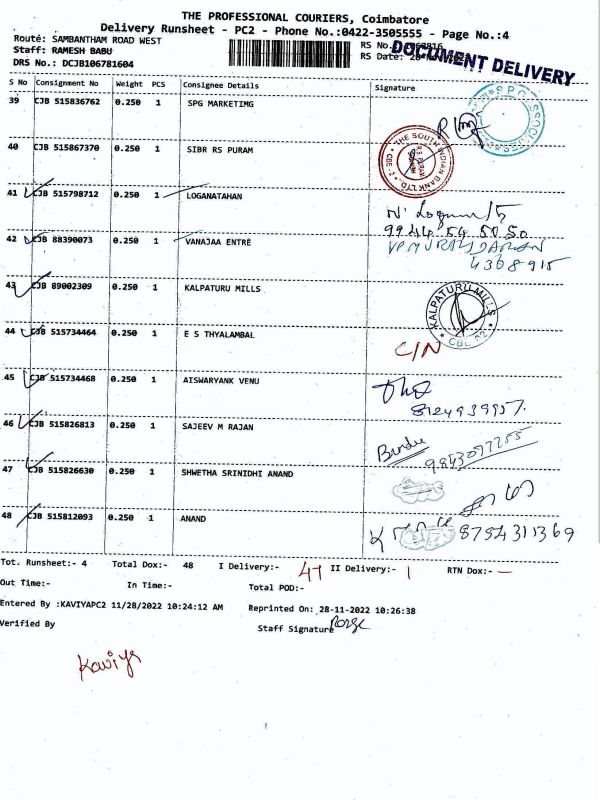 THE PROFESSIONAL COURIERS, Coimbatore
Delivery Runsheet - PC2 - Phone No.:0422-3505555 - Page No.:4
Route: SAMBANTHAM ROAD WEST
Staff: RAMESH BABU
DRS No.: DCJB106781604
RS No.
RS Date:
DOCUMENT DELIVERY
S No Consignment No Weight PCS Consignee Details Signature
39 CJB 515836762 0.250 1 SPG MARKETIMG
40 CJB 515867370 0.250 1 SIBR RS PURAM
THE SOUTH INDIAN BANK LTD.
41 CJB 515798712 0.250 1 LOGANATHAN
42 CJB 88390073 0.250 1 VANAJAA ENTRE
4368915
43 CJB 89002309 0.250 1 KALPATURU MILLS
KALPATURU MILLS
44 CJB 515734464 0.250 1 E S THYALAMBAL
C/N
45 CJB 515734468 0.250 1 AISWARYANK VENU
8124939957.
46 CJB 515826813 0.250 1 SAJEEV M RAJAN
Bindu
9843097255
47 CJB 515826630 0.250 1 SHWETHA SRINIDHI ANAND
48 CJB 515812093 0.250 1 ANAND
8754311369
Tot. Runsheet:- 4 Total Dox:- 48 I Delivery:- 47 II Delivery:- 1 RTN Dox:- —
Out Time:- In Time:- Total POD:-
Entered By :KAVIYAPC2 11/28/2022 10:24:12 AM Reprinted On: 28-11-2022 10:26:38
Verified By Staff Signature
Kaviya